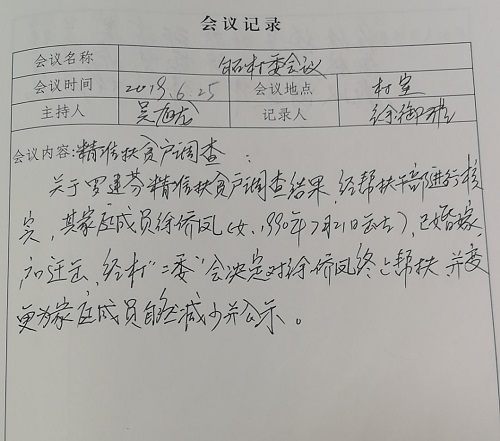 会议记录
会议名称 村委会议
会议时间 2019.6.25 会议地点 村室
主持人 吴 记录人 徐御
会议内容:精准扶贫户调查:
关于罗建芬精准扶贫户调查结果,经帮扶干部进行核
实,其家庭成员徐侨凤(女,1990年7月21日出生),已婚嫁,
户口迁出,经村"二委"会决定对徐侨凤终止帮扶,并变
更为家庭成员自然减少并公示。